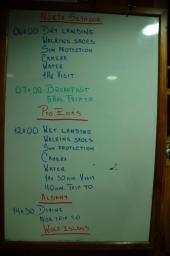 North Seymour
06:00 Dry Landing
Walking Shoes
Sun Protection
Camera
Water
1Hr Visit
07:00 Breakfast
Pto. Egas
12:00 Wet Landing
Walking Shoes
Sun Protection
Camera
Water
1Hr 30min Visit
40min Trip to
Albany
14:30 Diving
Trip to
Wolf Island